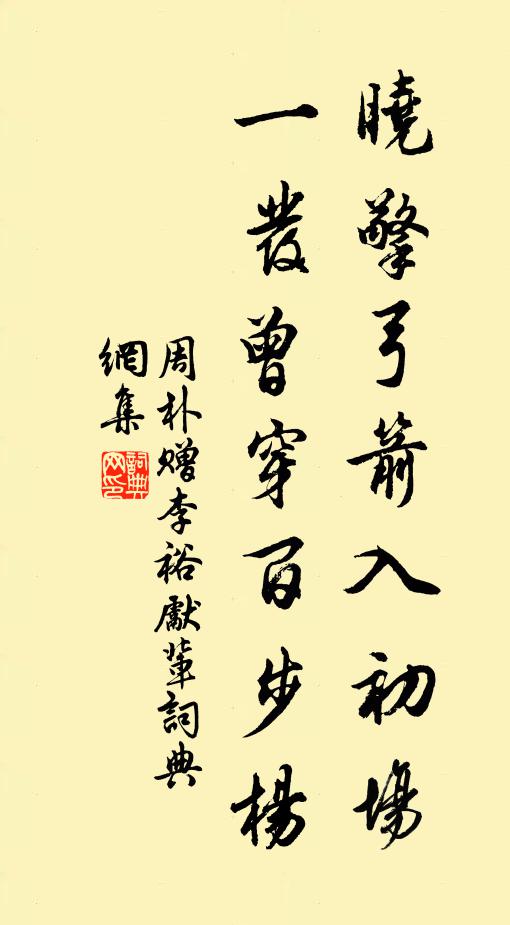 曉擎弓箭入初場
一發曾穿百步楊
周朴贈李裕獻輩詞典
網集
詞典網印